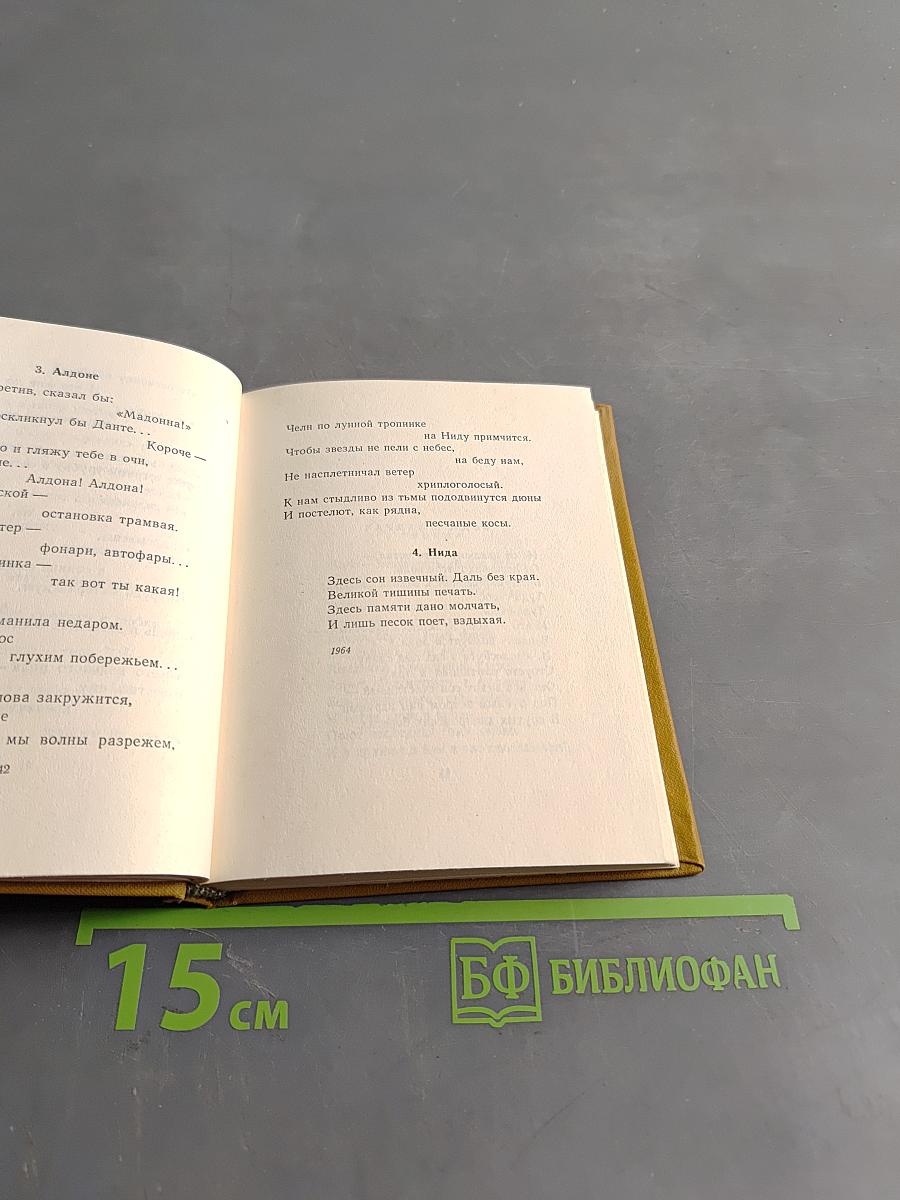 3. Алдоне
сказал бы:
«Мадонна!»
бы Данте...
Короче —
и гляжу тебе в очи,
Алдона! Алдона!
остановка трамвая.
фонари, автофары...
так вот ты какая!
недаром.
глухим побережьем...
закружится,
мы волны разрежем,
Челн по лунной тропинке
на Ниду примчится.
Чтобы звезды не пели с небес,
на беду нам,
Не насплетничал ветер
хриплоголосый.
К нам стыдливо из тьмы пододвинутся дюны
И постелют, как рядна,
песчаные косы.
4. Нида
Здесь сон извечный. Даль без края.
Великой тишины печать.
Здесь памяти дано молчать,
И лишь песок поет, вздыхая.
1964
15 см
БФ БИБЛИОФАН